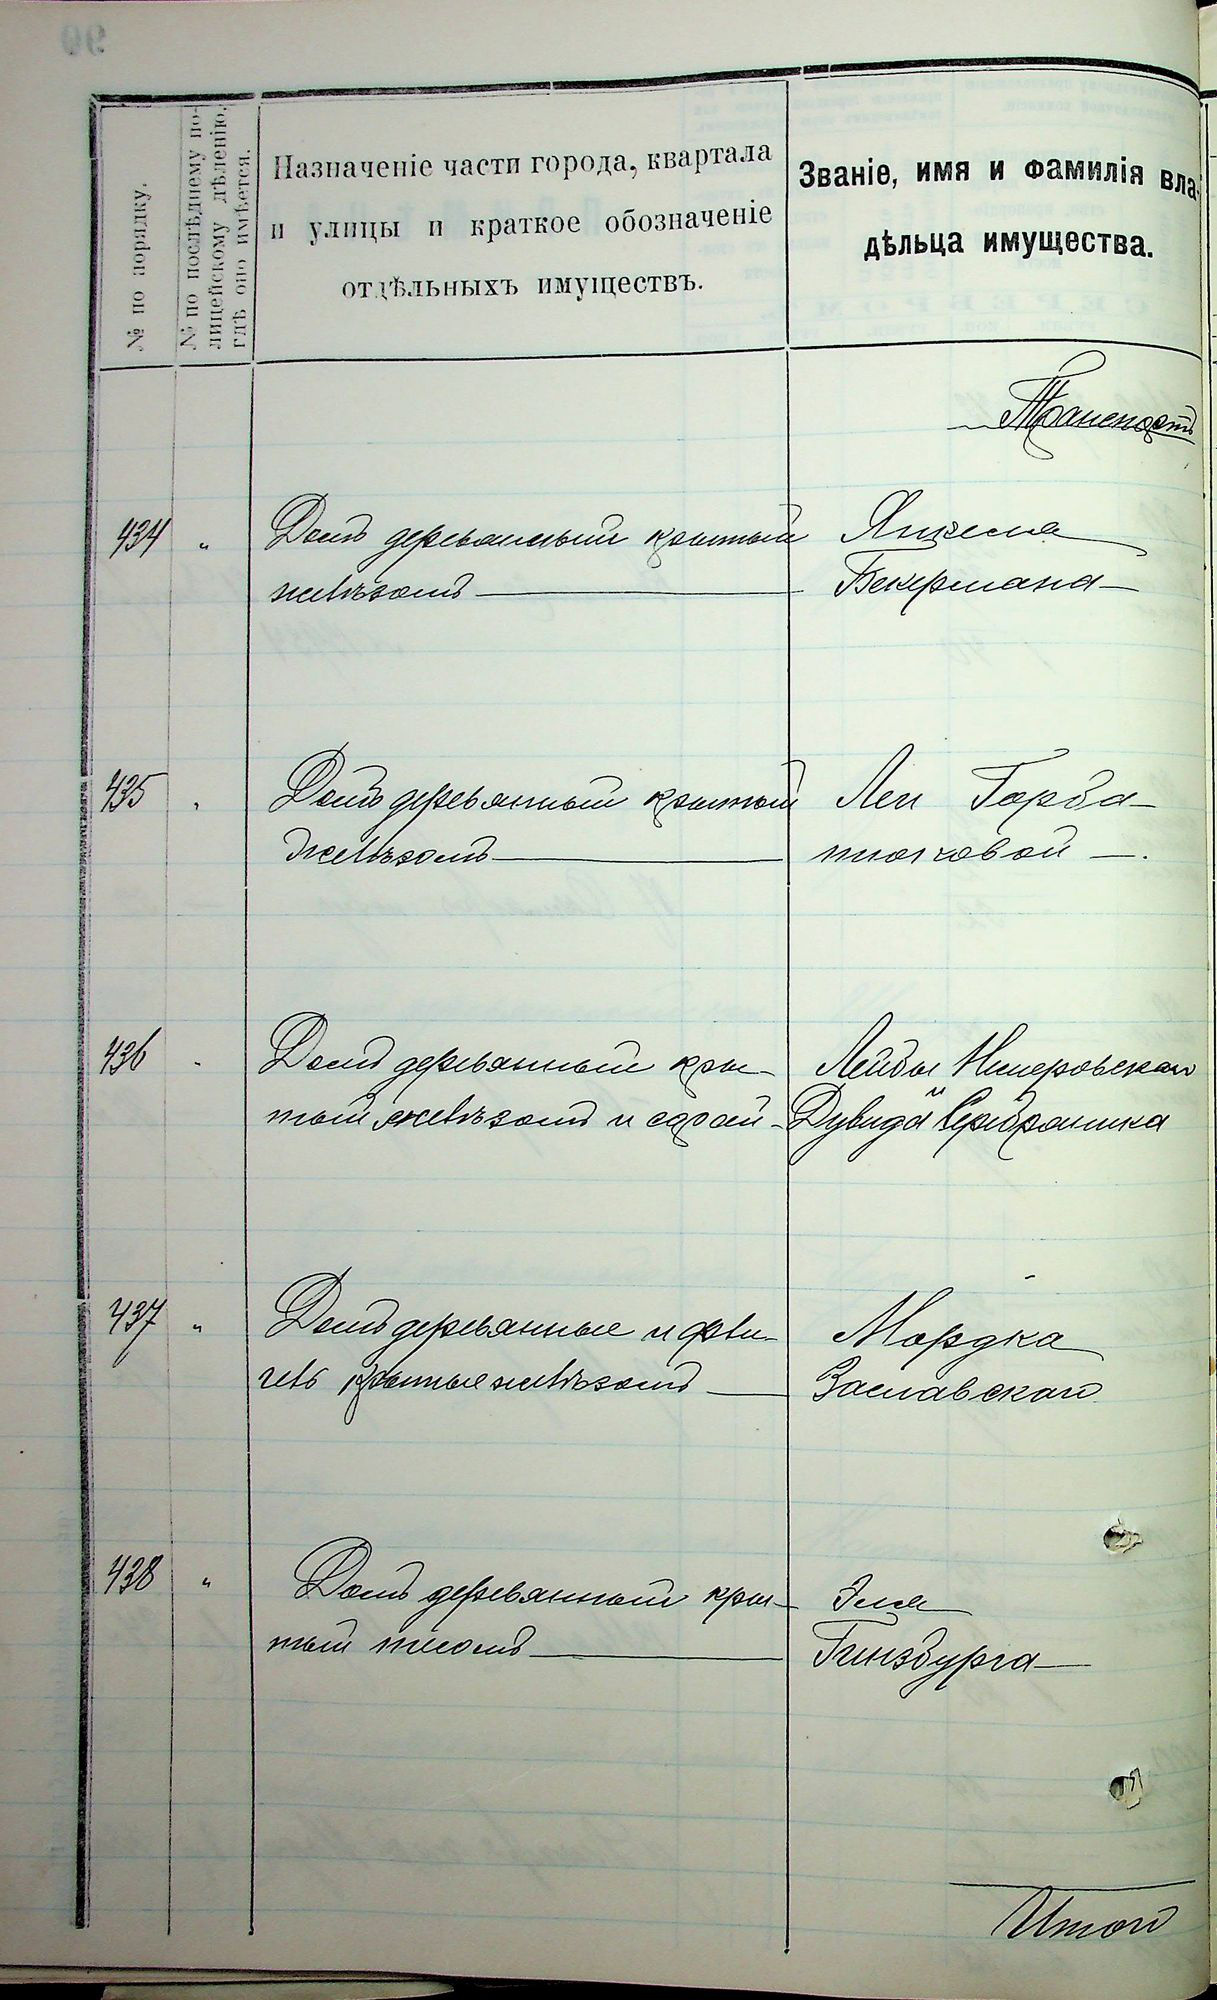 № по порядку.
№ по послѣднему по-
лицейскому дѣленію,
гдѣ оно имѣется.
Назначеніе части города, квартала
и улицы и краткое обозначеніе
отдѣльныхъ имуществъ.
Званіе, имя и фамилія вла-
дѣльца имущества.
Транспортъ
434 „ Домъ деревянный крытый
желѣзомъ
Янкеля
Бекермана
435 „ Домъ деревянный крытый
желѣзомъ
Леи Горба-
436 „ Домъ деревянный кры-
тый желѣзомъ и сарай
Лейбы Немеровскаго
и
Дувида Серебраника
437 „ Домъ деревянные и фли-
гель крытые желѣзомъ
Мордка
Заславскаго
438 „ Домъ деревянный кры-
тый тесомъ
Эля
Гинзбурга
Итого